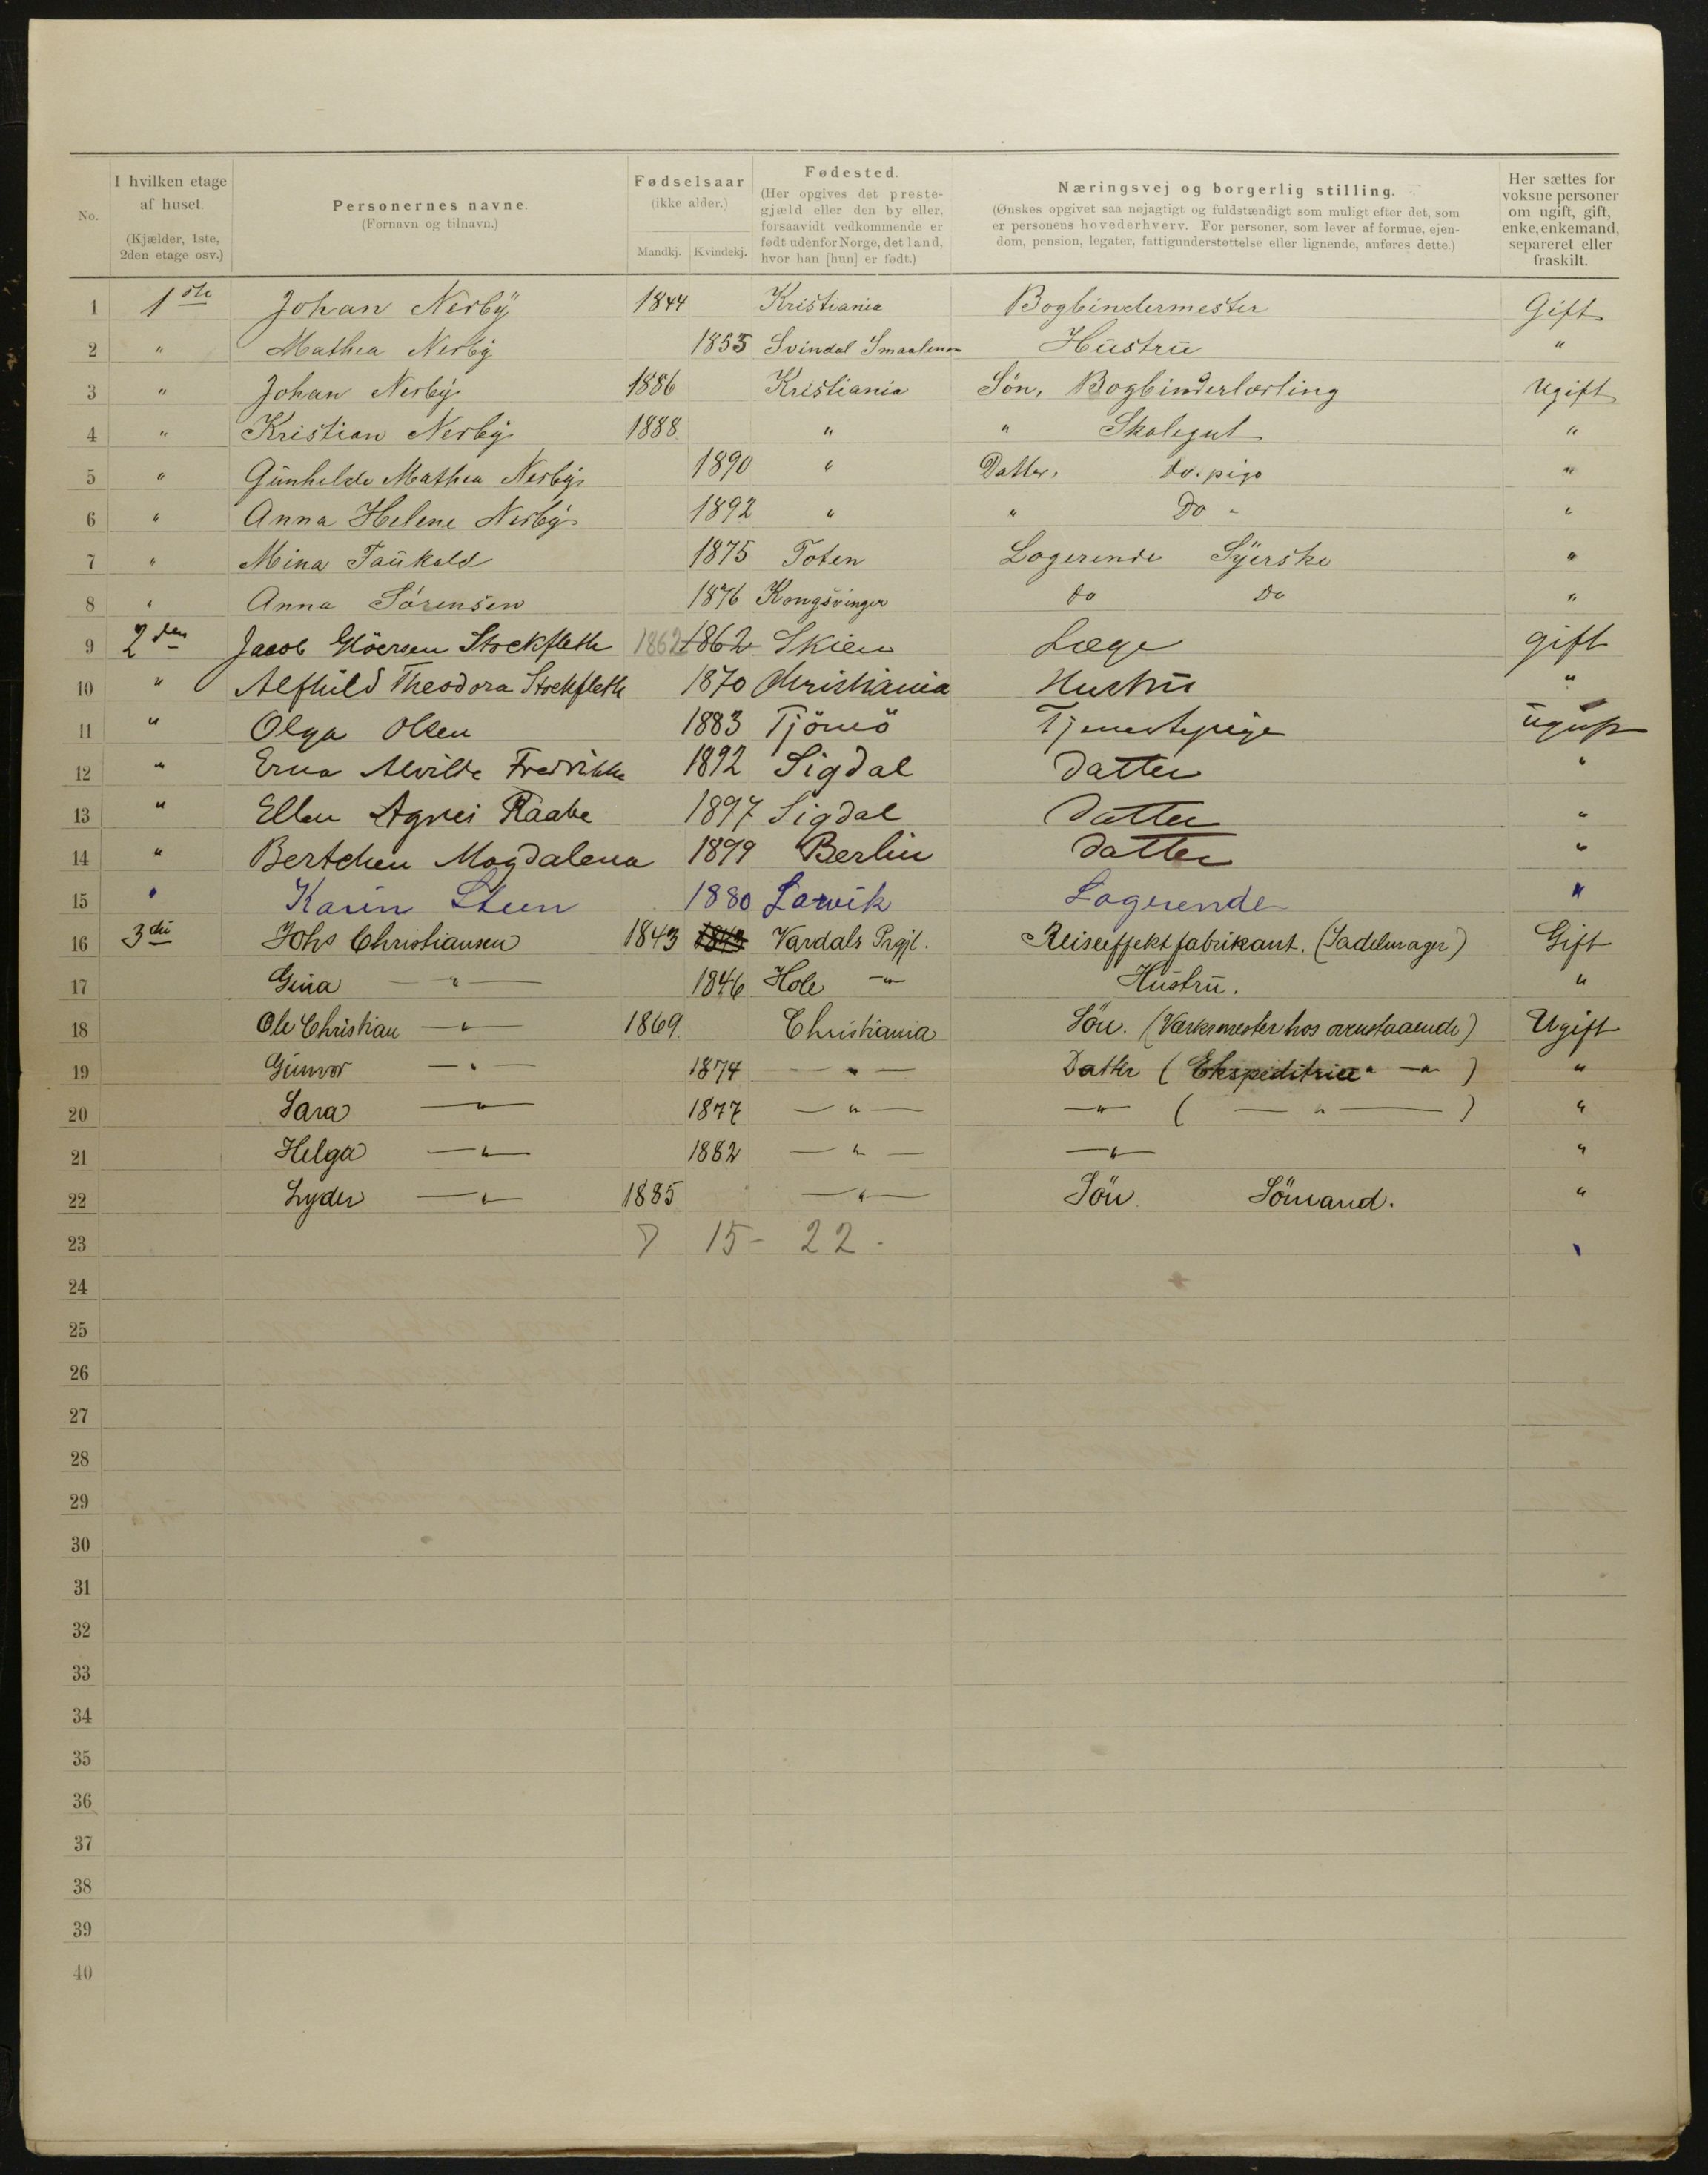 No. | I hvilken etage af huset. (Kjælder, 1ste, 2den etage osv.) | Personernes navne. (Fornavn og tilnavn.) | Fødselsaar (ikke alder.) Mandkj. Kvindekj. | Fødested. (Her opgives det prestegjæld eller den by eller, forsaavidt vedkommende er født udenfor Norge, det land, hvor han [hun] er født.) | Næringsvej og borgerlig stilling. (Ønskes opgivet saa nøjagtigt og fuldstændigt som muligt efter det, som er personens hovederhverv. For personer, som lever af formue, ejendom, pension, legater, fattigunderstøttelse eller lignende, anføres dette.) | Her sættes for voksne personer om ugift, gift, enke, enkemand, separeret eller fraskilt.
1 1ste Johan Nerby 1844 Kristiania Bogbindermester Gift
2 " Mathea Nerby 1853 Svindal Smaalenene Hustru "
3 " Johan Nerby 1886 Kristiania Søn, Bogbinderlærling Ugift
4 " Kristian Nerby 1888 " " Skolegut "
5 " Gunhilde Mathea Nerby 1890 " Datter, Do. pige "
6 " Anna Helene Nerby 1892 " " Do " "
7 " Mina Faukald 1875 Toten Logerende Syerske "
8 " Anna Sørensen 1876 Kongsvinger do Do "
9 2den Jacob Gløersen Stockfleth 1862 1862 Skien Læge gift
10 " Alfhild Theodora Stockfleth 1870 Christiania Hustru "
11 " Olga Olsen 1883 Tjömö Tjenestepige ugift
12 " Erna Alvilde Fredrikke 1892 Sigdal Datter "
13 " Ellen Agnes Raabe 1897 Sigdal Datter "
14 " Bertchen Magdalena 1899 Berlin Datter "
15 " Karin Steen 1880 Larvik Logerende "
16 3die Johs Christiansen 1843 1843 Vardals Prgjl. Reiseeffektfabrikant. (Sadelmager) Gift
17 Gina — " — 1846 Hole — " Hustru. "
18 Ole Christian — " — 1869 Christiania Sön. (Værksmester hos ovenstaaende) Ugift
19 Gunvor — " — 1874 — " — Datter (Ekspeditrice " — " — ) "
20 Sara — " — 1877 — " — — " — ( — " — ) "
21 Helga — " — 1882 — " — — " — "
22 Lyder — " — 1885 — " — Sön Sömand. "
23 7 15 - 22 -
24
25
26
27
28
29
30
31
32
33
34
35
36
37
38
39
40